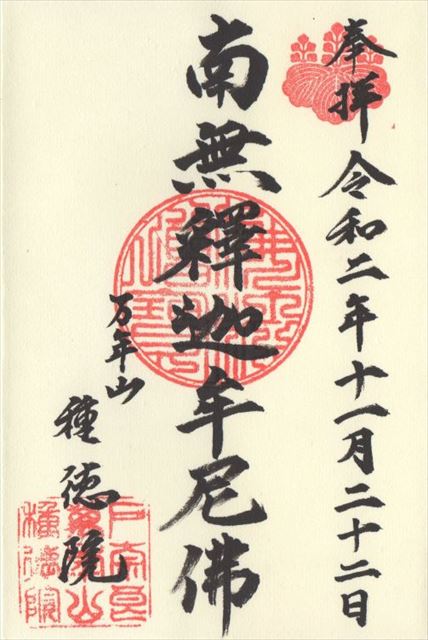 奉拝 令和二年十一月二十二日
南無釋迦牟尼佛
万年山
種徳院